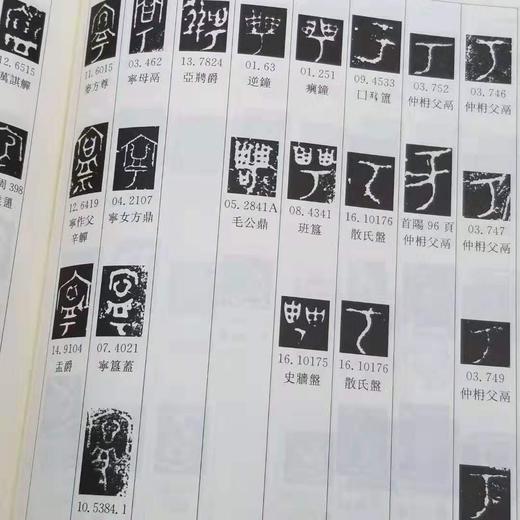 12.6515
萬諆觶
11.6015
麥方尊
03.462
寧母鬲
13.7824
亞㝬爵
01.63
逆鐘
01.251
𤼈鐘
09.4533
03.752
仲枏父鬲
03.746
仲枏父鬲
周 398
12.6419
寧作父
辛觶
04.2107
寧女方鼎
05.2841A
毛公鼎
08.4341
班簋
16.10176
散氏盤
首陽 96 頁
仲枏父鬲
03.747
仲枏父鬲
14.9104
盂爵
07.4021
寧簋蓋
16.10175
史牆盤
16.10176
散氏盤
03.749
仲枏父鬲
10.5384.1